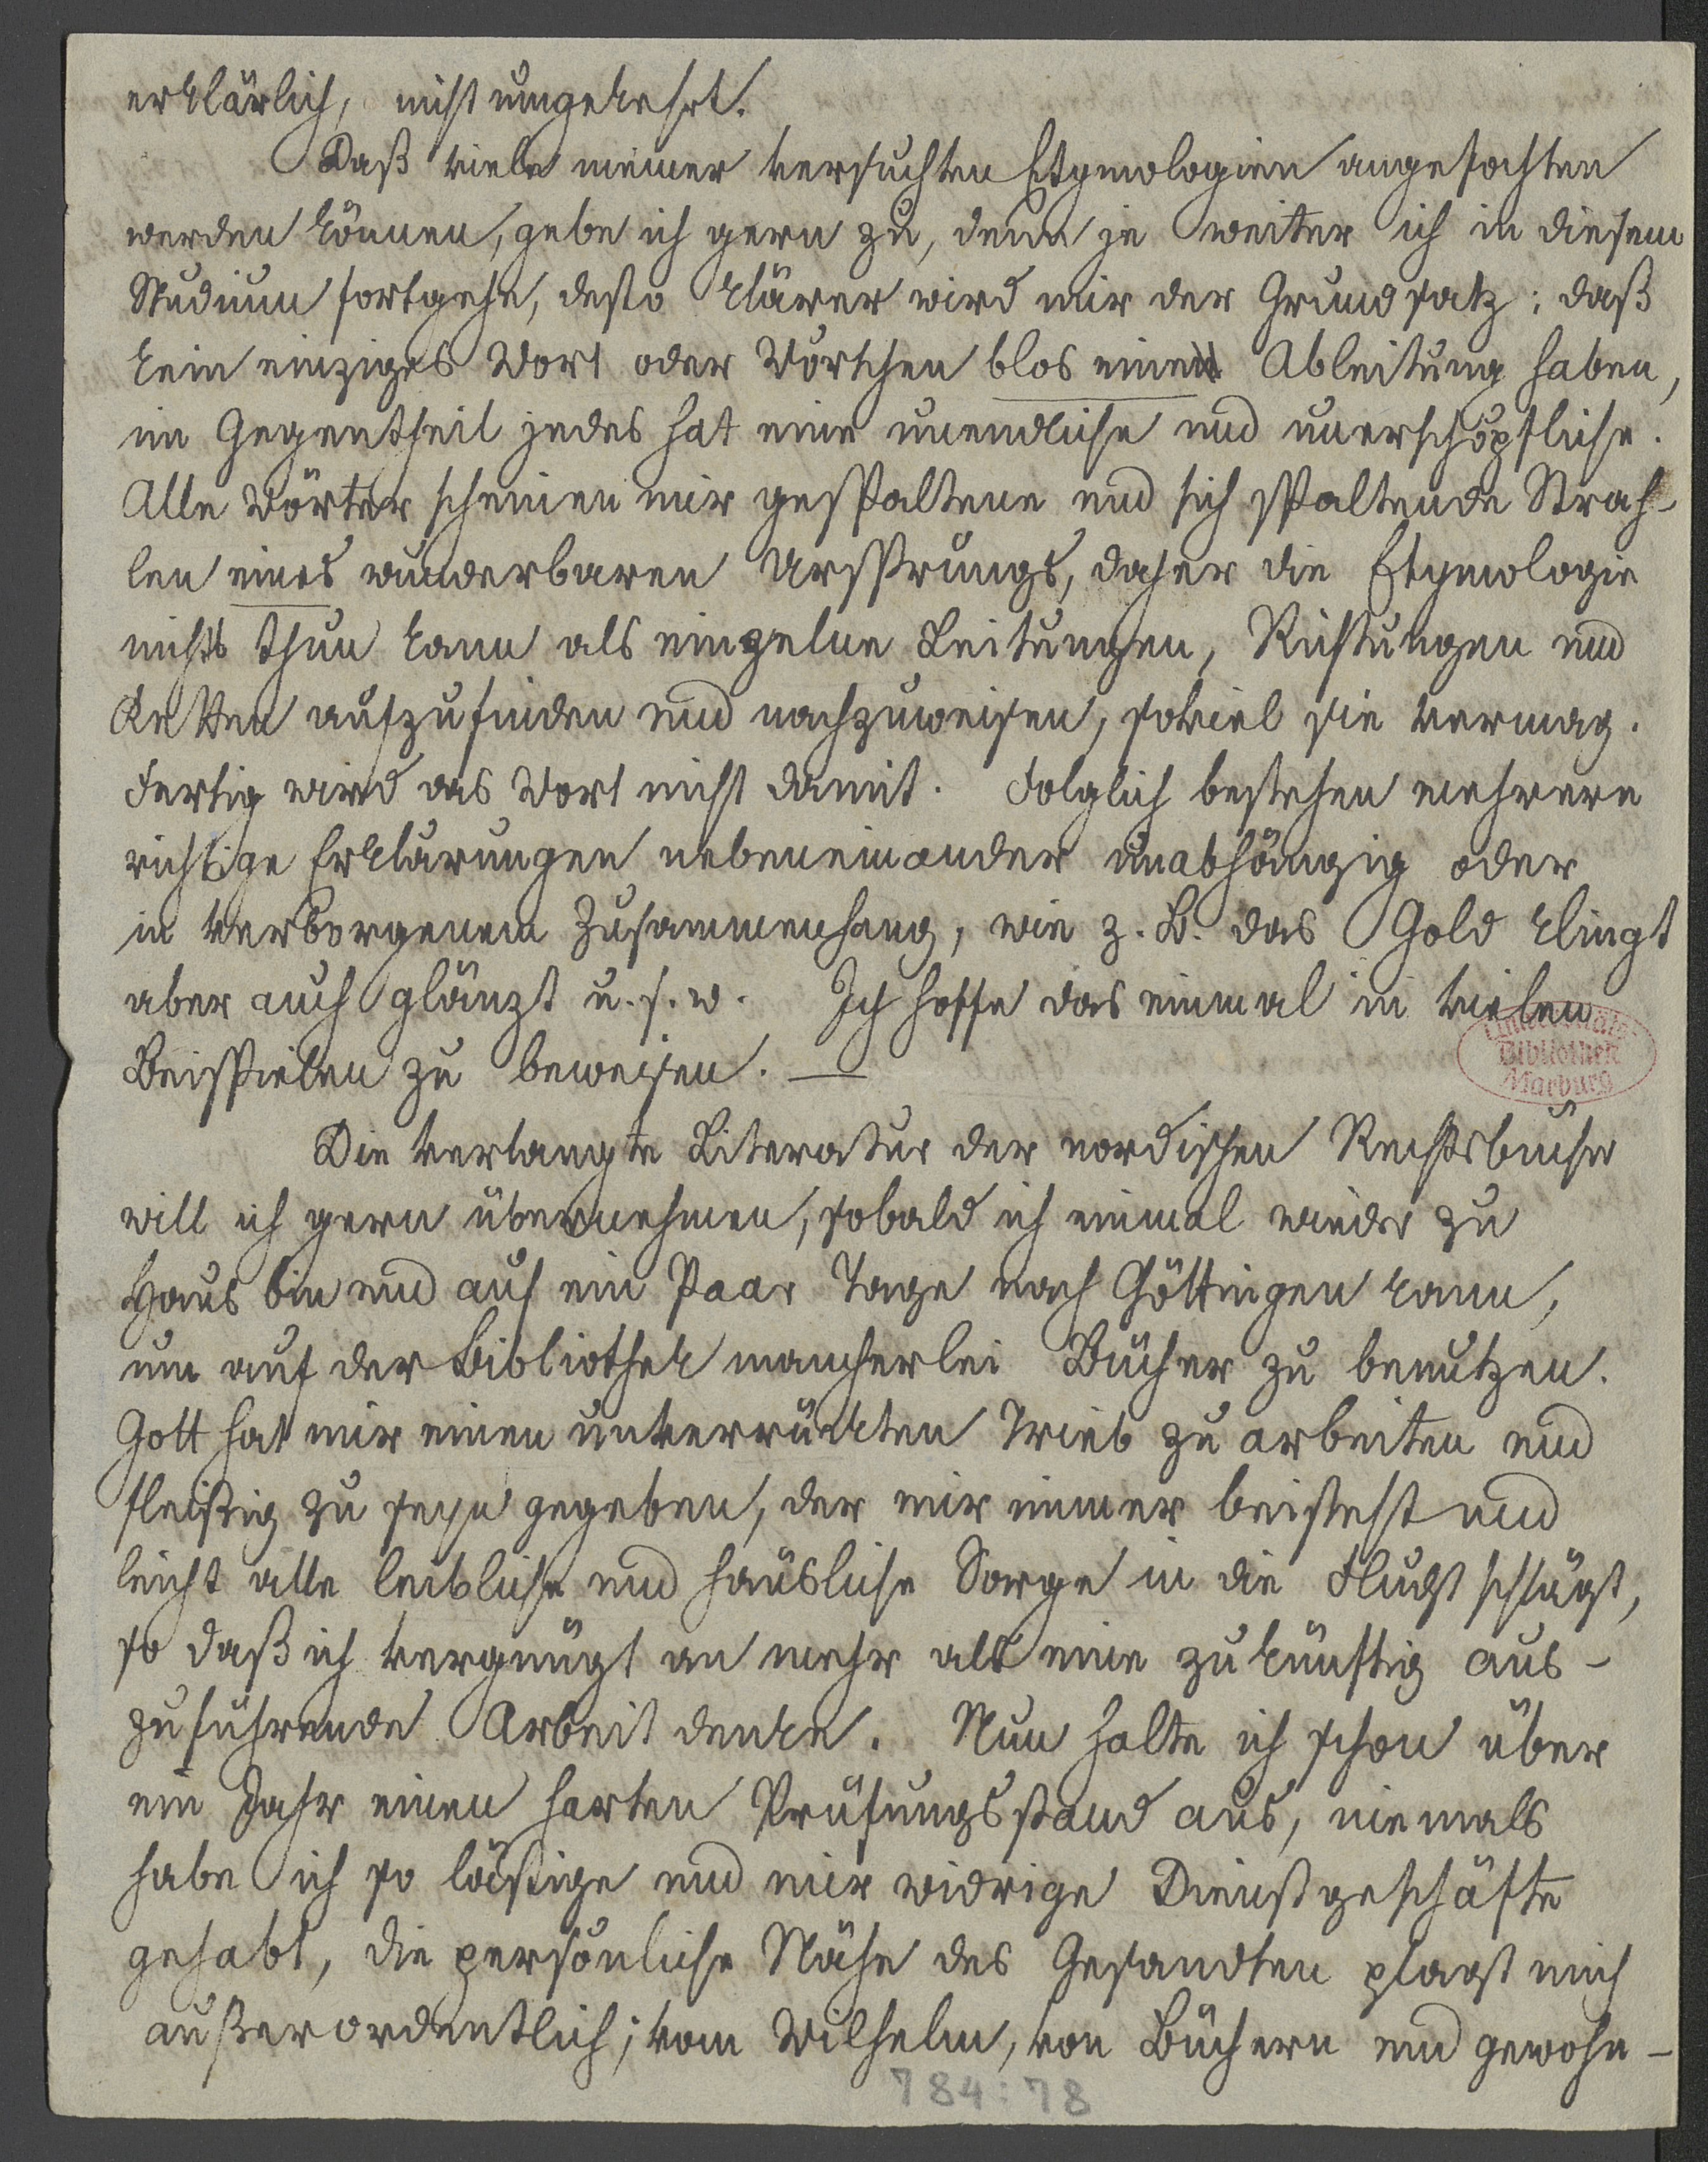 erklärlich, nicht umgekehrt.
Daß viele meiner versuchten Etymologien angefochten
werden können, gebe ich gern zu, denn je weiter ich in diesem
Studium fortgehe, desto klärer wird mir der Grundsatz: daß
kein einziges Wort oder Wörtchen blos eine Ableitung haben,
im Gegentheil jedes hat eine unendliche und unerschöpfliche.
Alle Wörter scheinen mir gespaltene und sich spaltende Strah-
len eines wunderbaren Ursprungs, daher die Etymologie
nichts thun kann als einzelne Leitungen, Richtungen und
Ketten aufzufinden und nachzuweisen, soviel sie vermag.
Fertig wird das Wort nicht damit. Folglich bestehen mehrere
richtige Erklärungen nebeneinander unabhängig oder
in verborgenem Zusammenhang, wie z. B. das Gold klingt
aber auch glänzt u. s. w. Ich hoffe das einmal in vielen
Beispielen zu beweisen. —
Universitäts-
Bibliothek
Marburg
Die verlangte Literatur der nordischen Rechtsbücher
will ich gern übernehmen, sobald ich einmal wieder zu
Haus bin und auf ein Paar Tage nach Göttingen kann,
um auf der Bibliothek mancherlei Bücher zu benutzen.
Gott hat mir einen unverrückten Trieb zu arbeiten und
fleißig zu seyn gegeben, der mir immer beisteht und
leicht alle leibliche und häusliche Sorge in die Flucht schlägt,
so daß ich vergnügt an mehr als eine zukünftig aus-
zuführende Arbeit denke. Nun halte ich schon über
ein Jahr einen harten Prüfungsstand aus, niemals
habe ich so lästige und mir widrige Dienstgeschäfte
gehabt, die persönliche Nähe des Gesandten plagt mich
außerordentlich; vom Wilhelm, von Büchern und gewohn-
784:78